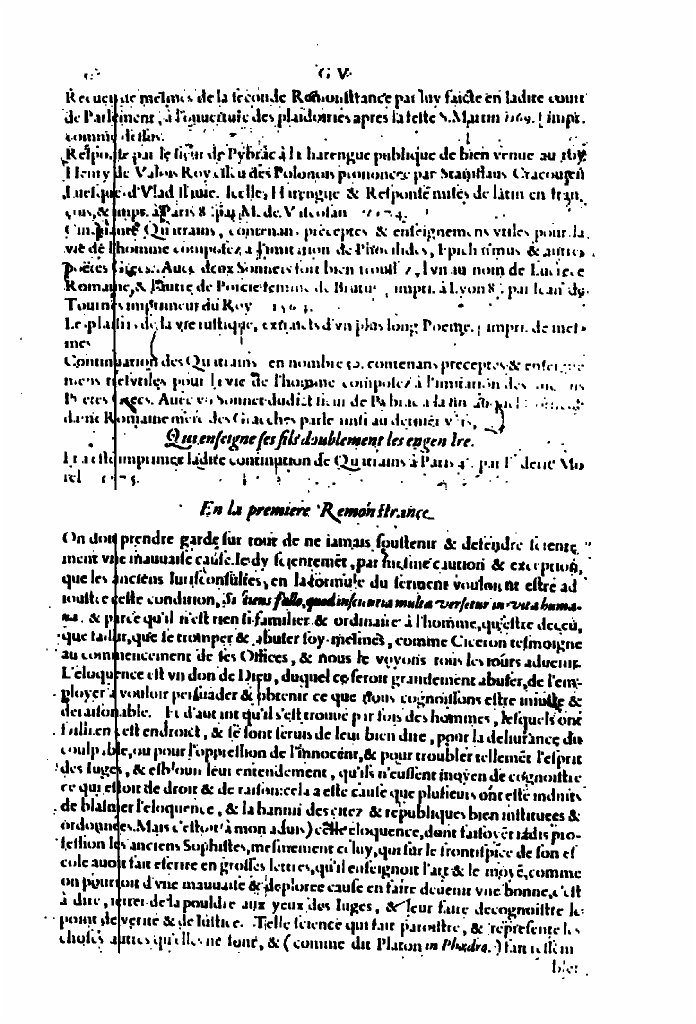 G V
Recueil de mesmes de la seconde Remonstrance par luy faicte en ladite court
de Parlement, à l'ouuerture des plaidoiries apres la feste S. Martin 1569. [impr.
comme dessus.
Response par le sieur de Pybrac à la harengue publique de bien venue au Roy
Henry de Valois Roy esleu des Polonois prononcee par Stanislaus
Euesque d'Vladislauie. Icelles Harengue & Response mises de latin en fran
çois, & impr. à Paris 8. par M. de Vascosan 1574.
Cinquante Quatrains, contenans preceptes & enseignemens vtiles pour la
vie de l'homme composez à l'imitation de Phocilides, Epicharmus & autres
poëtes Grecs. Auec deux Sonnets fort bien troussez, l'vn au nom de Lucrece
Romaine, & l'autre de Porcie femme de Brutus, impri. à Lyon 8. par Iean de
Tournes imprimeur du Roy
Les plaisirs de la vie rustique, extraicts d'vn plus long Poeme. [impri. de mes-
mes
Continuation des Quatrains en nombre contenans preceptes & enseigne
mens tresvtiles pour la vie de l'homme composez à l'imitation des anciens
Poëtes Grecs. Auec vn Sonnet dudict sieur de Pybrac a la fin
dame Romaine mere des Gracches parle ainsi au dernier vers,
Qui enseigne ses fils doublement les engendre.
Et a esté imprimee ladite continuation de Quatrains à Paris 4. par Federic Mo
rel 1575.
En la premiere Remonstrance
On doit prendre garde sur tout de ne iamais soustenir & defendre sciem̃e
ment vne mauuaise cause. Ie dy sciemmẽt, par mesme caution & exception,
que les anciens Iurisconsultes, en la formule du serment vouloient estre ad
ioustee ceste condition, Si sciens fallo, quod inscientia multa versetur in vita huma-
na. & parce qu'il n'est rien si familier & ordinaire à l'homme, qu'estre deceu,
que faillir, que se tromper & abuser soy-mesmes, comme Ciceron tesmoigne
au commencement de ses Offices, & nous le voyons tous les iours aduenir.
L'eloquence est vn don de Dieu, duquel ce seroit grandement abuser, de l'em-
ployer à vouloir persuader & obtenir ce que nous cognoissons estre iniuste &
desraisonable. Et d'autant qu'il s'est trouué par fois des hommes, lesquels ont
failli en cest endroict, & se sont seruis de leur bien dire, pour la deliurance du
coulpable, ou pour l'oppression de l'innocent, & pour troubler tellemẽt l'esprit
des Iuges, & esblouir leur entendement, qu'ils n'eussent moyen de cognoistre
ce qui estoit de droit & de raison: cela a esté cause que plusieurs ont esté induits
de blasmer l'eloquence, & la bannir des citez & republiques bien instituees &
ordonnees. Mais c'estoit (à mon aduis) celle eloquence, dont faisoyẽt iadis pro-
fession les anciens Sophistes, mesmement celuy, qui sur le frontispice de son es
cole auoit fait escrire en grosses lettres, qu'il enseignoit l'art & le moyẽ, comme
on pourroit d'vne mauuaise & deploree cause en faire deuenir vne bonne, c'est
à dire, ietter de la pouldre aux yeux des Iuges, & leur faire decognoistre le
point de verité & de Iustice. Telle science qui fait paroistre, & represente les
choses autres qu'elles ne sont, & (comme dit Platon in Phædro.) fait ressem
bler